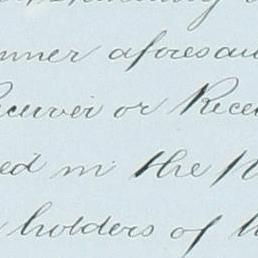 nner aforesai
eceiver or Recei
ed in the
holders of